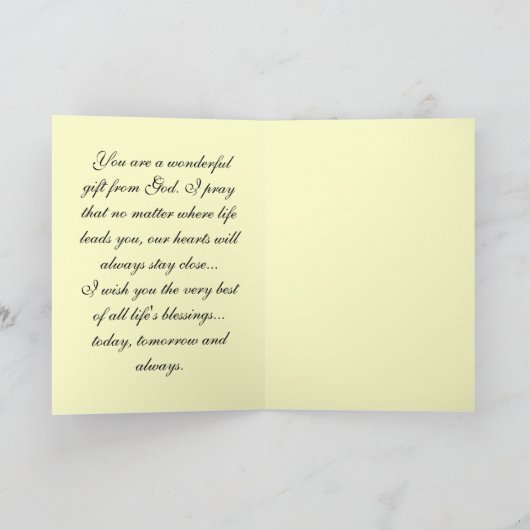 You are a wonderful
gift from God. I pray
that no matter where life
leads you, our hearts will
always stay close...
I wish you the very best
of all life's blessings...
today, tomorrow and
always.